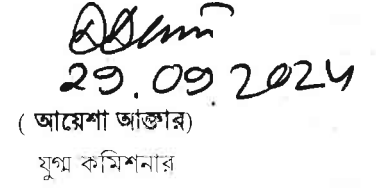 29.09.2024
( আয়েশা আক্তার)
যুগ্ম কমিশনার